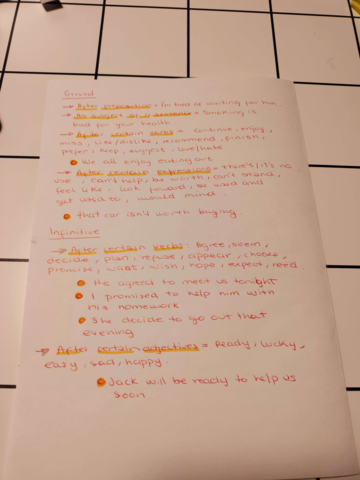 Gerund
→ After preposition = I'm bad at waiting for him.
→ As subject of a sentence = Smoking is
bad for your health
→ After certain verbs = continue, enjoy,
miss, like/dislike, recommend, finish,
prefer, keep, suggest, love/hate
We all enjoy eating out
→ After certain expressions = there's/it's no
use, can't help, be worth, can't stand,
feel like, look forward, be used and
get used to, would mind.
that car isn't worth buying.
Infinitive
→ After certain verbs: Agree, seem,
decide, plan, refuse, appear, choose,
promise, want, wish, hope, expect, need
He agreed to meet us tonight
I promised to help him with
his homework
She decide to go out that
evening
→ After certain adjectives = Ready, lucky,
easy, sad, happy.
Jack will be ready to help us
soon